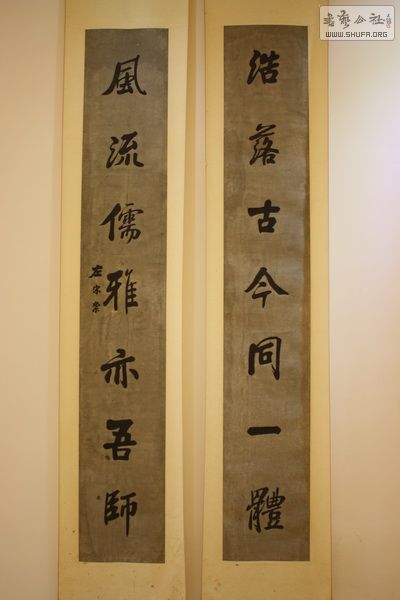 浩落古今同一體
風流儒雅亦吾師
左宗棠
WWW.SHUFA.ORG